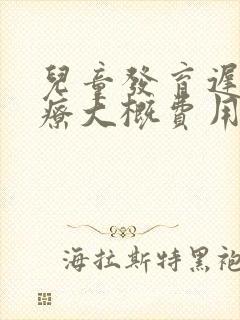 兒童發育遲
療大概費用
海拉斯特黑袍